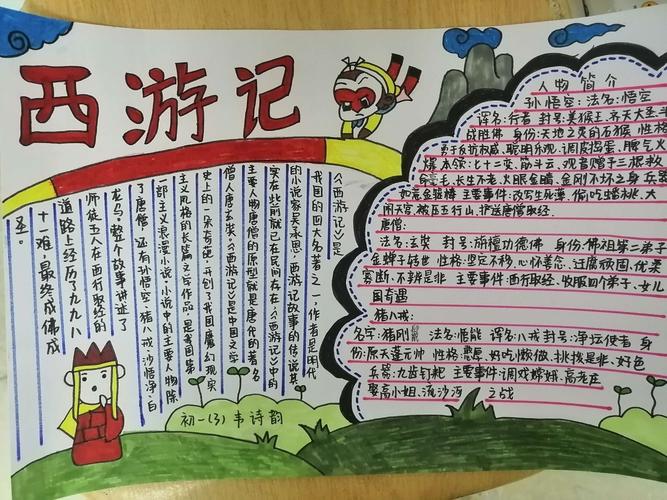 西游记
《西游记》是
我国的四大名著之一,作者是明代
的小说家吴承恩,西游记故事的传说其
实在此前就已在民间存在《西游记》中的
主要人物唐僧的原型就是唐代的著名
僧人唐玄奘。《西游记》是中国文学
史上的一朵奇葩,开创了我国魔幻现实
主义风格的长篇文学作品,是我国第
一部主义浪漫小说,小说中的主要人物除
了唐僧,还有孙悟空、猪八戒、沙悟净、白
龙马。整个故事讲述了
师徒五人在西行取经的
道路上经历了九九八
十一难,最终成佛成
圣。
初一(3) 韦诗韵
人物简介
孙悟空:法名:悟空
译名:行者 封号:美猴王、齐天大圣、斗
战胜佛 身份:天地之灵的石猴 性格
勇于反抗权威、聪明乐观、调皮捣蛋、脾气火
爆 本领:七十二变、筋斗云、观音赠予三根救
命毫毛、长生不老、火眼金睛、金刚不坏之身 兵器
如意金箍棒 主要事件:改写生死薄、偷吃蟠桃、大
闹天宫、被压五行山、护送唐僧取经.
唐僧:
法名:玄奘 封号:旃檀功德佛 身份:佛祖第二弟子
金蝉子转世 性格:坚定不移、心怀善念、迂腐顽固、优柔
寡断、不辨是非 主要事件:西行取经、收服四个弟子、女儿
国奇遇
猪八戒:
名字:猪刚鬣 法名:悟能 译名:八戒 封号:净坛使者 身
份:原天蓬元帅 性格:憨厚、好吃懒做、挑拨是非、好色
兵器:九齿钉耙 主要事件:调戏嫦娥、高老庄
娶高小姐、流沙河 之战